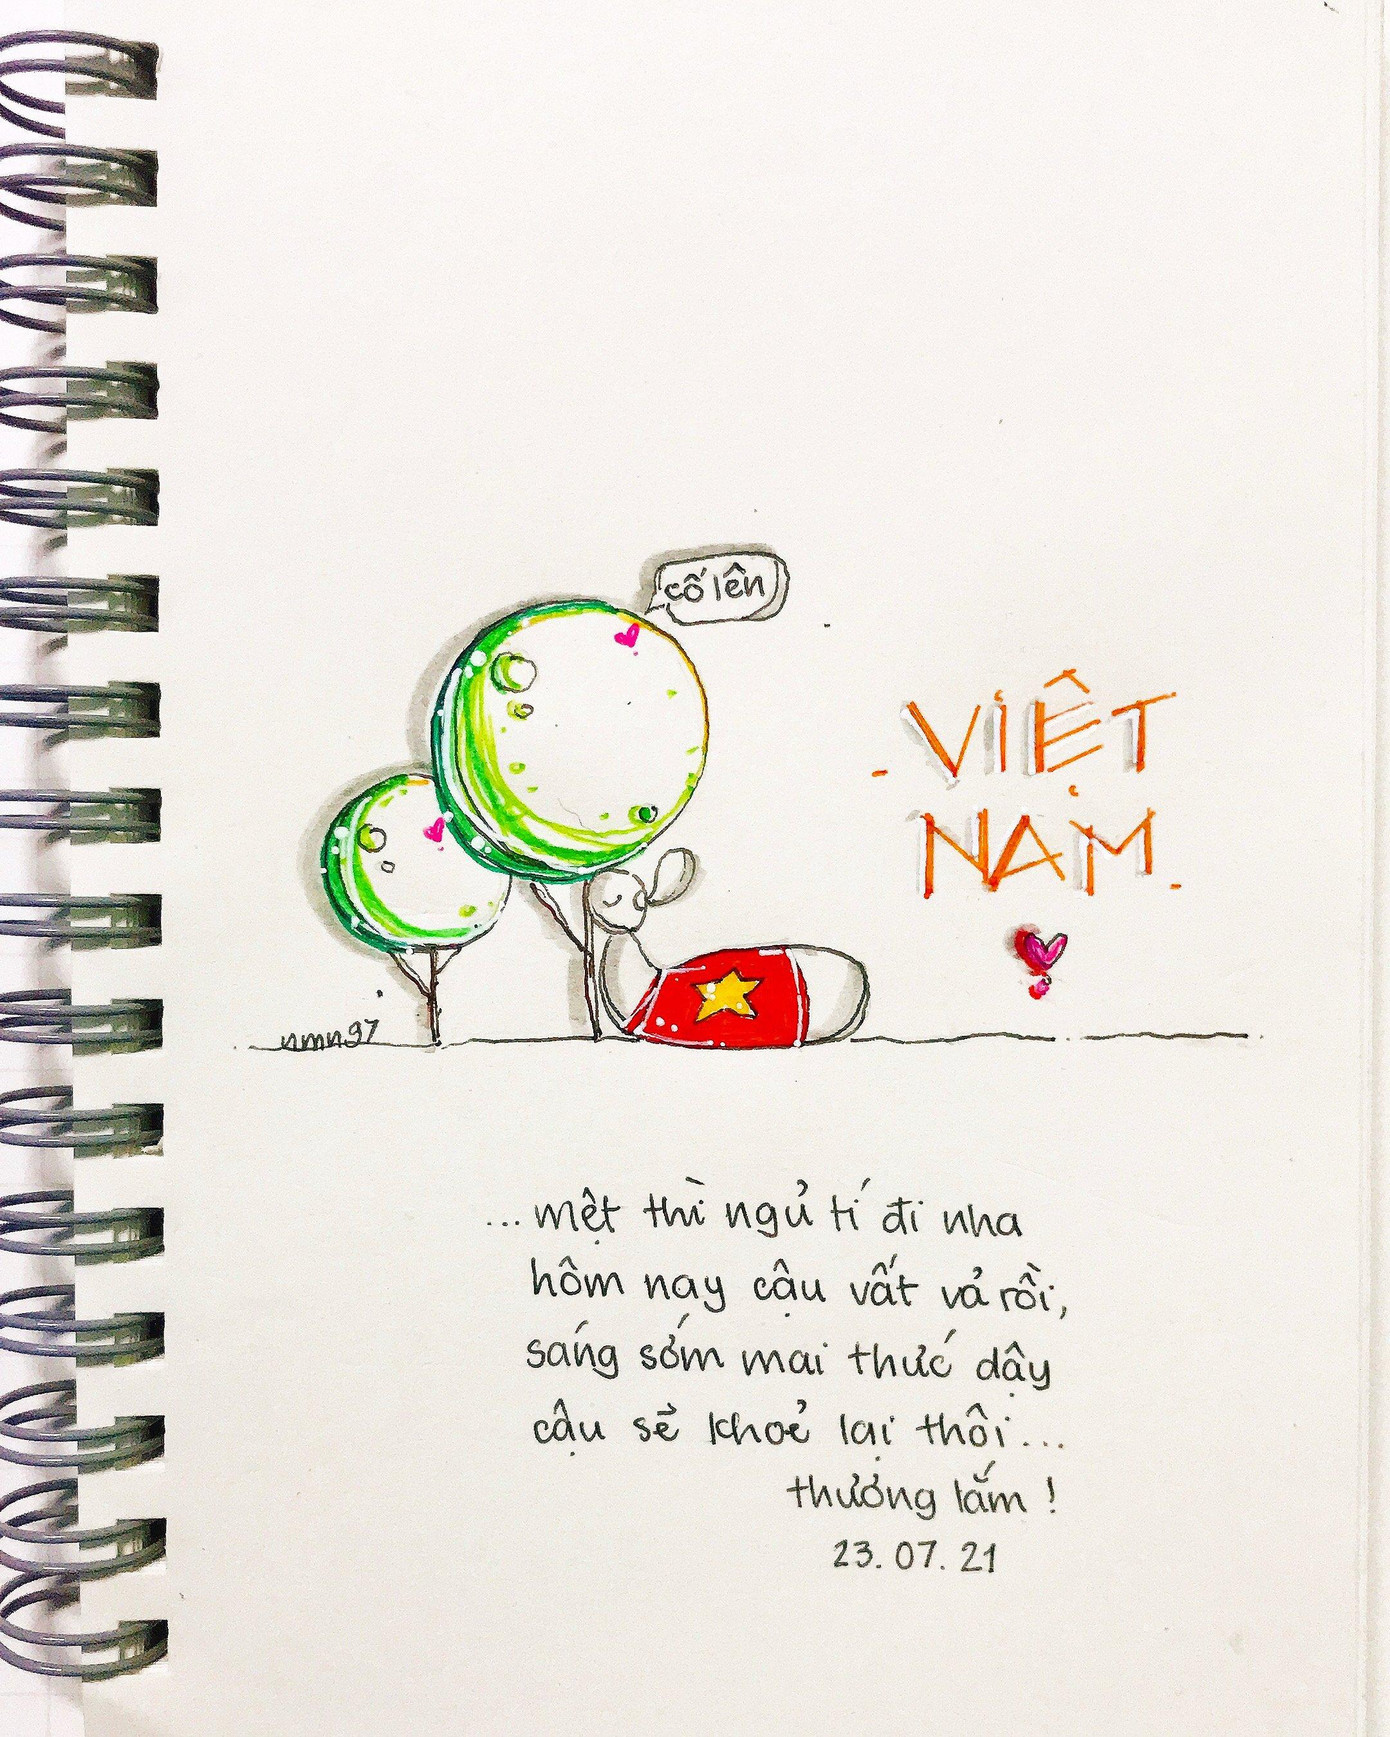 cố lên
- VIỆT
NAM.
nmn97
... mệt thì ngủ tí đi nha
hôm nay cậu vất vả rồi,
sáng sớm mai thức dậy
cậu sẽ khoẻ lại thôi...
thương lắm !
23.07.21